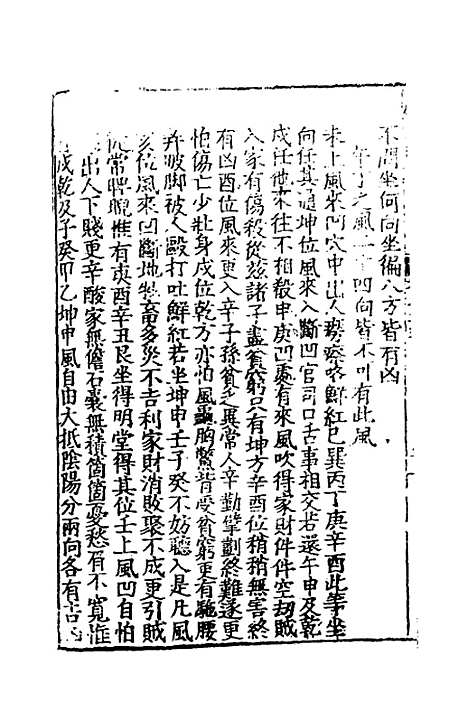 不問坐何向坐徧八方皆有凶
午丁之風二十四向皆不可有此風
未上風來凹穴中出人癆瘵略鮮紅巳巽丙丁庚辛酉此等坐
向任其通坤位風來入斷凹官司口舌事相交若還午申及乾
戌任他來往不相殺申庚凹處有來風吹得家財件件空刼賊
入家有傷殺從兹諸子盡貧窮只有坤方辛酉位稍稍無害終
有凶酉位風來更入辛子孫貧乏異常人辛勤擘劃終難遂更
怕傷亡少壯身戌位乾方亦怕風龜胸鱉背受貧窮更有駞腰
并跛脚被人毆打吐鮮紅若坐坤申壬子癸不妨聽入是凡風
亥位風來凹斷地牲畜多災不吉利家財消敗聚不成更引賊
從常睥睨惟有庚酉辛丑艮坐得明堂得其位壬上風凹自怕
出人下賤更辛酸家無儋石囊無積箇箇憂愁眉不寬惟
戌乾及子癸卯乙坤申風自由大抵陰陽分兩向各有吉凶